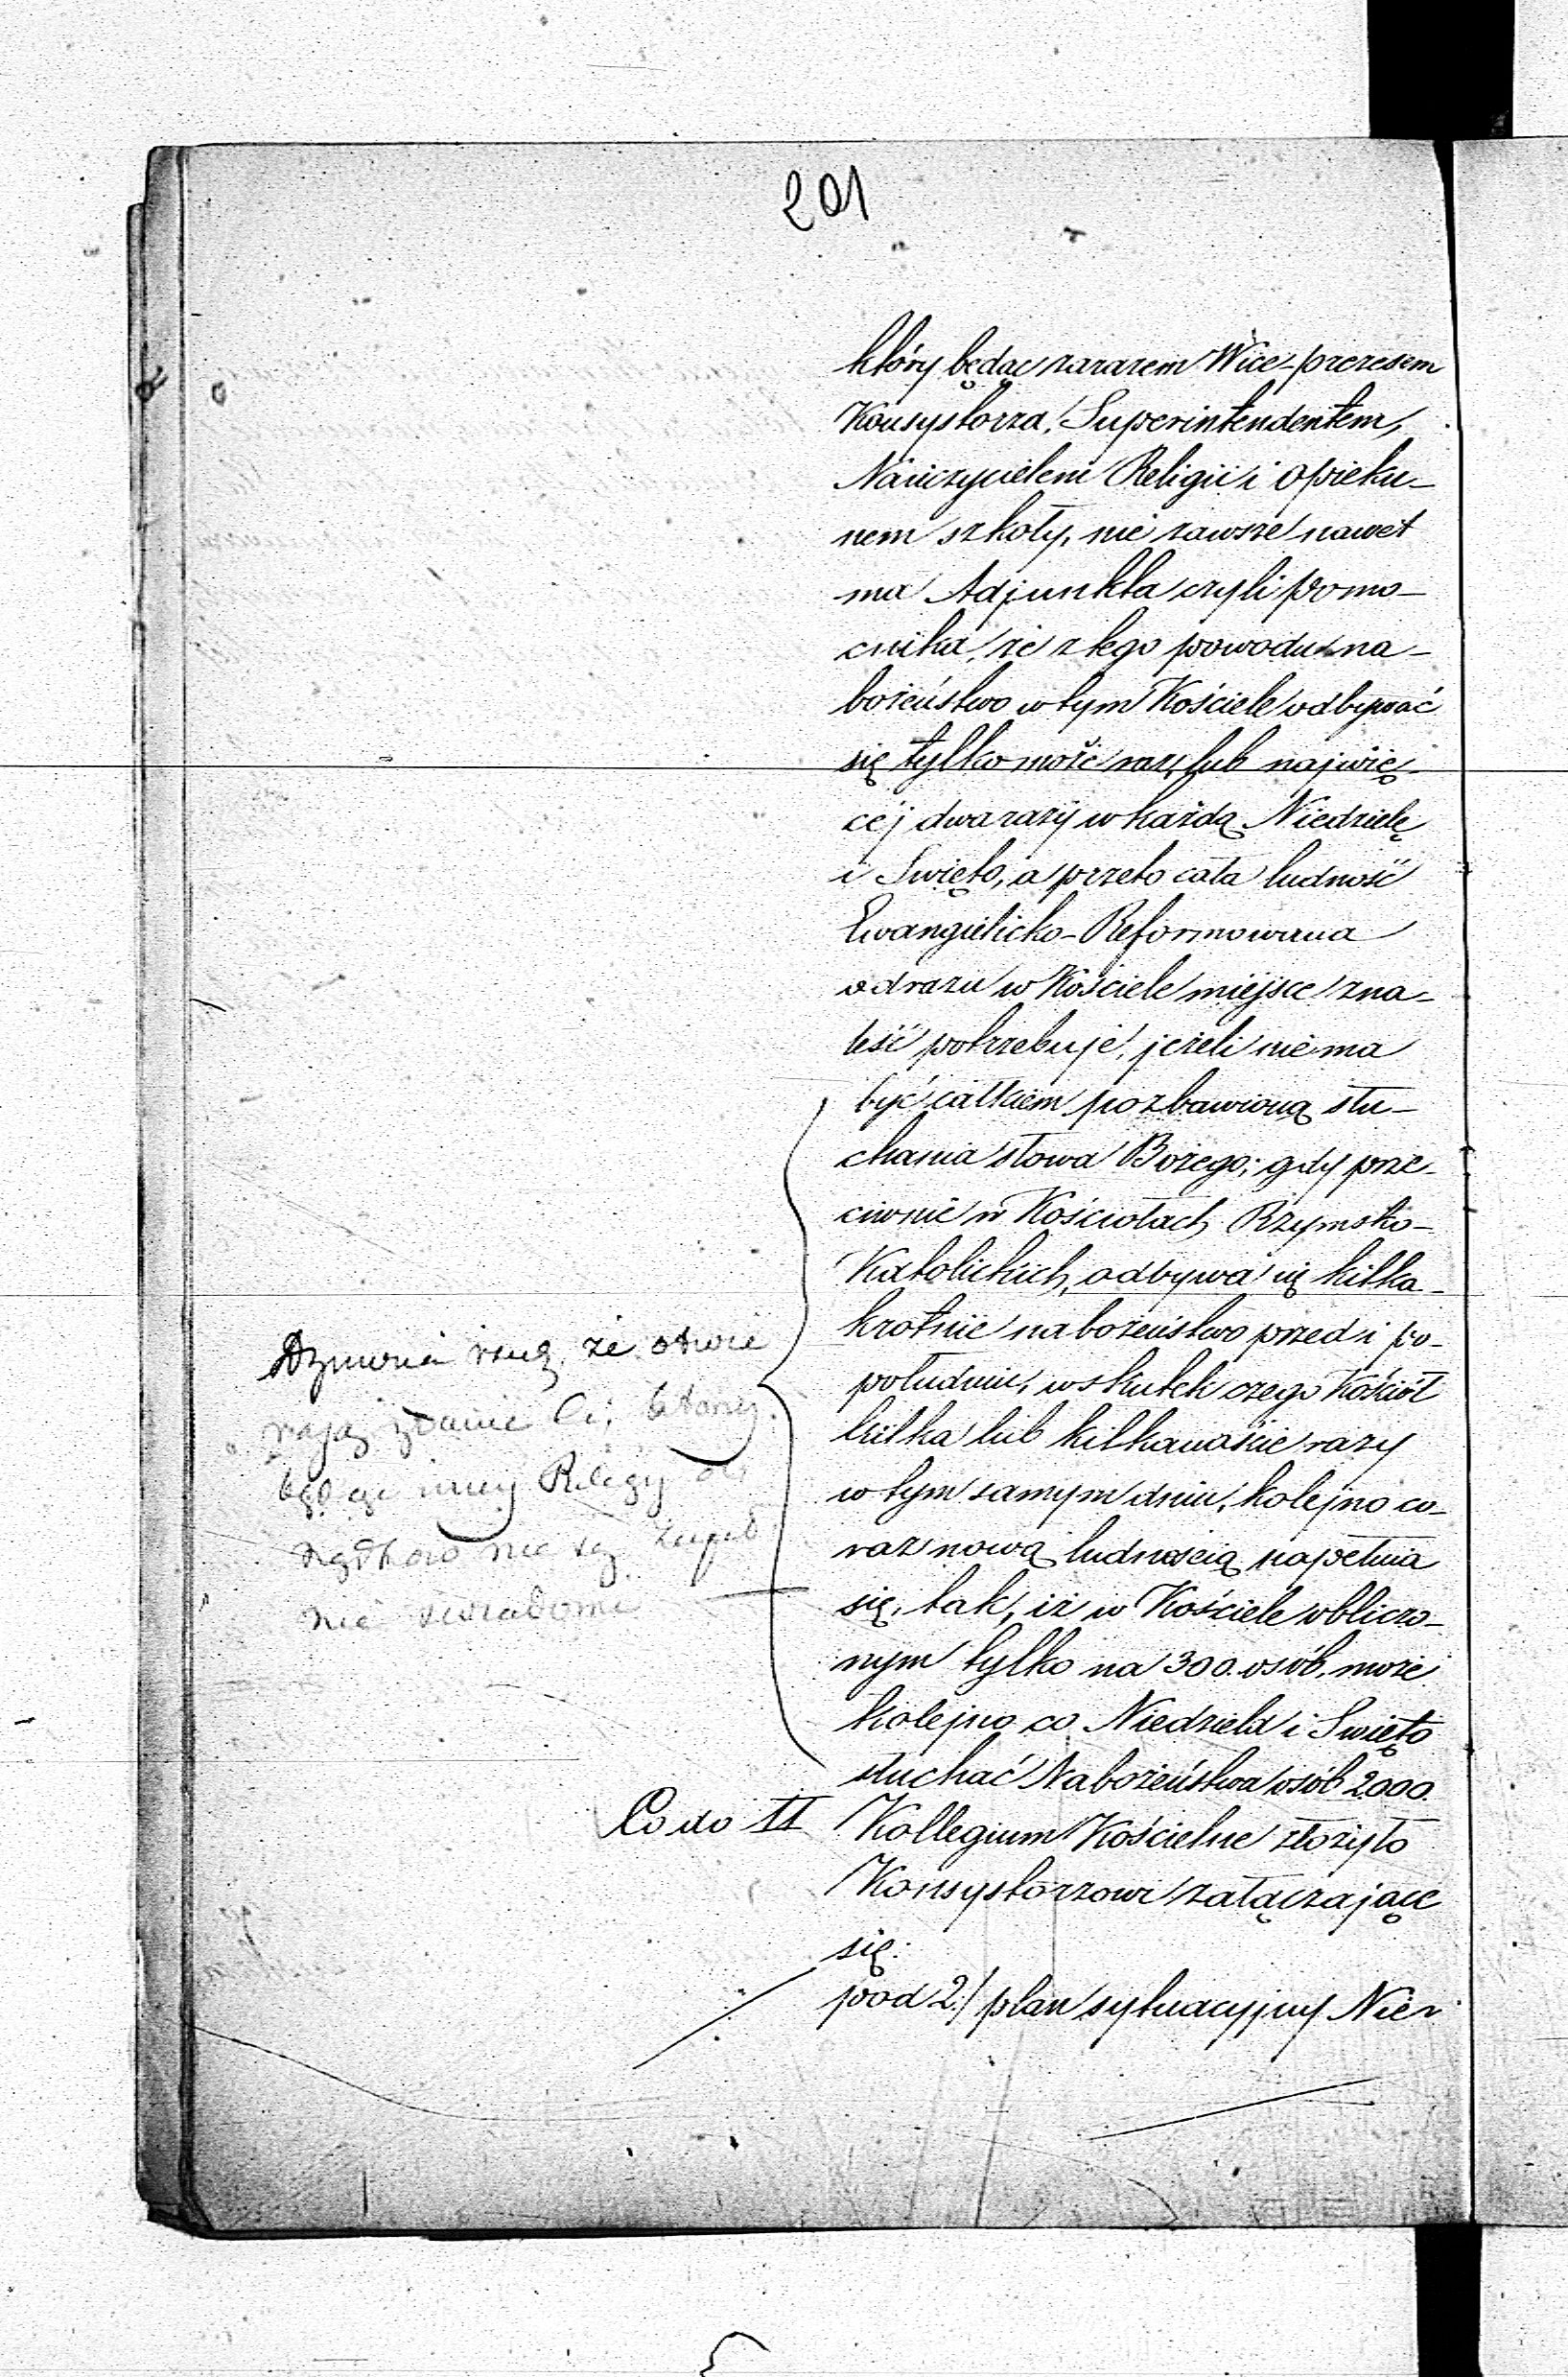 201
który będąc zarazem Wice-prezesem
Konsystorza, Superintendentem,
Nauczycielem Religii i opieku-
nem szkoły, nie zawsze nawet
ma Adjunkta czyli pomo-
cnika, że z tego powodu na-
bożeństwo w tym Kościele odbywać
się tylko może raz, lub najwię-
céj dwa razy w każdą Niedzielę
i Swięto, a przeto cała ludność
Ewangielicko-Reformowana
odrazu w Kościele miejsce zna-
leść potrzebuje, jeżeli nie ma
być całkiem pozbawioną słu-
chania słowa Bożego; gdy prze-
ciwnie w Kościołach Rzymsko-
Katolickich, odbywa się kilka-
krotnie nabożeństwo przed i po-
południu, wskutek czego Kościół
kilka lub kilkanaście razy
w tym samym dniu, kolejno co-
raz nową ludnością napełnia
się, tak, iż w Kościele obliczo-
nym tylko na 300. osób, może
kolejno co Niedziela i Swięto
słuchać Nabożeństwa osób 2000.
że
zdanie Ci,
innej Religij
nie są
nie
Co do II Kollegium Kościelne złożyło
Konsystorzowi załączające
się:
pod 2/ plan sytuacyjny Nier